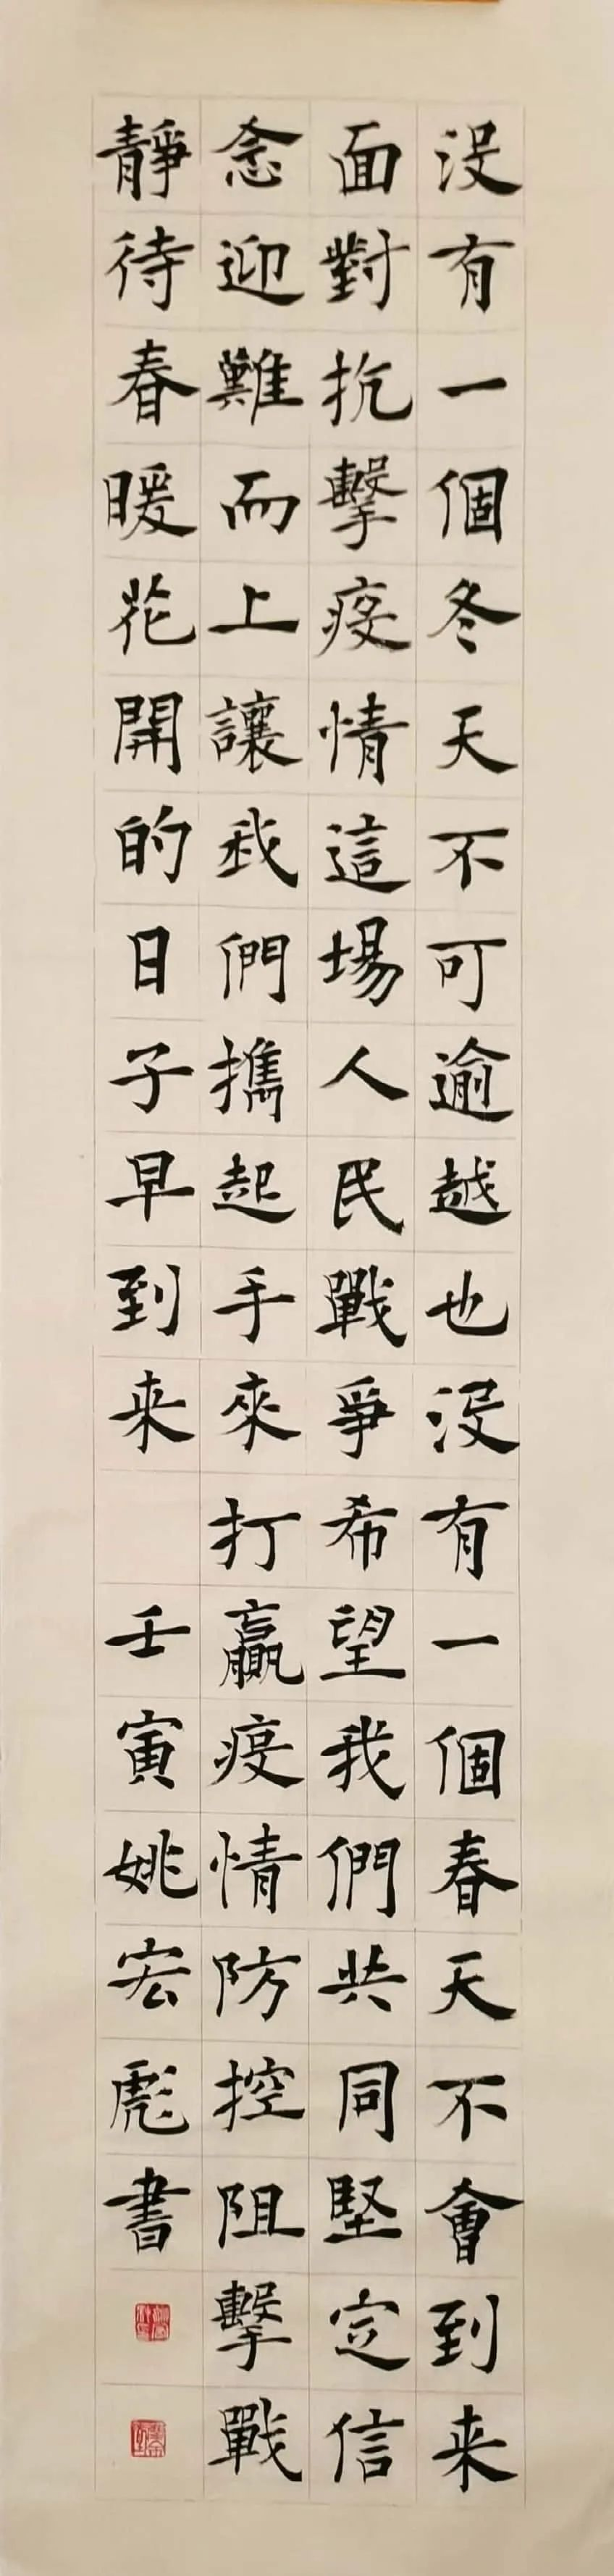 没有一個冬天不可逾越也没有一個春天不會到来
面對抗擊疫情這場人民戰爭希望我們共同堅定信
念迎難而上讓我們攜起手來打贏疫情防控阻擊戰
靜待春暖花開的日子早到来 壬寅姚宏彪書